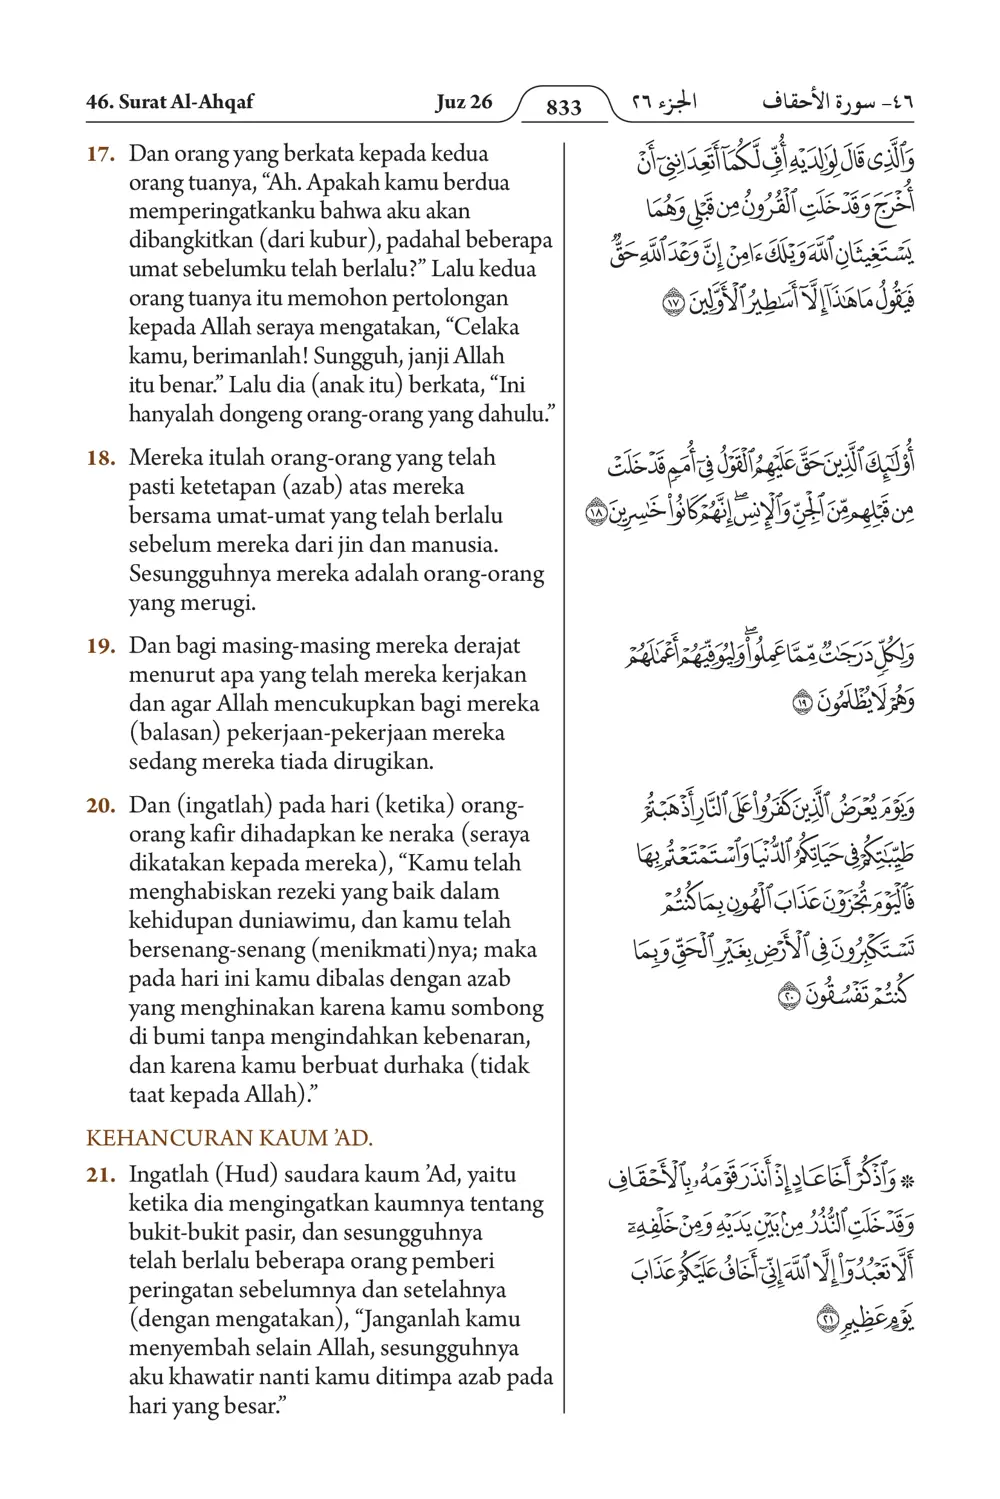 46. Surat Al-Ahqaf Juz 26 833 الجزء ٢٦ ٤٦- سورة الأحقاف
17. Dan orang yang berkata kepada kedua
orang tuanya, “Ah. Apakah kamu berdua
memperingatkanku bahwa aku akan
dibangkitkan (dari kubur), padahal beberapa
umat sebelumku telah berlalu?” Lalu kedua
orang tuanya itu memohon pertolongan
kepada Allah seraya mengatakan, “Celaka
kamu, berimanlah! Sungguh, janji Allah
itu benar.” Lalu dia (anak itu) berkata, “Ini
hanyalah dongeng orang-orang yang dahulu.”
وَٱلَّذِى قَالَ لِوَٰلِدَيْهِ أُفٍّ لَّكُمَآ أَتَعِدَانِنِىٓ أَنْ
أُخْرَجَ وَقَدْ خَلَتِ ٱلْقُرُونُ مِن قَبْلِى وَهُمَا
يَسْتَغِيثَانِ ٱللَّهَ وَيْلَكَ ءَامِنْ إِنَّ وَعْدَ ٱللَّهِ حَقٌّ
فَيَقُولُ مَا هَٰذَآ إِلَّآ أَسَٰطِيرُ ٱلْأَوَّلِينَ ١٧
18. Mereka itulah orang-orang yang telah
pasti ketetapan (azab) atas mereka
bersama umat-umat yang telah berlalu
sebelum mereka dari jin dan manusia.
Sesungguhnya mereka adalah orang-orang
yang merugi.
أُو۟لَٰٓئِكَ ٱلَّذِينَ حَقَّ عَلَيْهِمُ ٱلْقَوْلُ فِىٓ أُمَمٍ قَدْ خَلَتْ
مِن قَبْلِهِم مِّنَ ٱلْجِنِّ وَٱلْإِنسِ ۖ إِنَّهُمْ كَانُوا۟ خَٰسِرِينَ ١٨
19. Dan bagi masing-masing mereka derajat
menurut apa yang telah mereka kerjakan
dan agar Allah mencukupkan bagi mereka
(balasan) pekerjaan-pekerjaan mereka
sedang mereka tiada dirugikan.
وَلِكُلٍّ دَرَجَٰتٌ مِّمَّا عَمِلُوا۟ ۖ وَلِيُوَفِّيَهُمْ أَعْمَٰلَهُمْ
وَهُمْ لَا يُظْلَمُونَ ١٩
20. Dan (ingatlah) pada hari (ketika) orang-
orang kafir dihadapkan ke neraka (seraya
dikatakan kepada mereka), “Kamu telah
menghabiskan rezeki yang baik dalam
kehidupan duniawimu, dan kamu telah
bersenang-senang (menikmati)nya; maka
pada hari ini kamu dibalas dengan azab
yang menghinakan karena kamu sombong
di bumi tanpa mengindahkan kebenaran,
dan karena kamu berbuat durhaka (tidak
taat kepada Allah).”
وَيَوْمَ يُعْرَضُ ٱلَّذِينَ كَفَرُوا۟ عَلَى ٱلنَّارِ أَذْهَبْتُمْ
طَيِّبَٰتِكُمْ فِى حَيَاتِكُمُ ٱلدُّنْيَا وَٱسْتَمْتَعْتُم بِهَا
فَٱلْيَوْمَ تُجْزَوْنَ عَذَابَ ٱلْهُونِ بِمَا كُنتُمْ
تَسْتَكْبِرُونَ فِى ٱلْأَرْضِ بِغَيْرِ ٱلْحَقِّ وَبِمَا
كُنتُمْ تَفْسُقُونَ ٢٠
KEHANCURAN KAUM ’AD.
21. Ingatlah (Hud) saudara kaum ’Ad, yaitu
ketika dia mengingatkan kaumnya tentang
bukit-bukit pasir, dan sesungguhnya
telah berlalu beberapa orang pemberi
peringatan sebelumnya dan setelahnya
(dengan mengatakan), “Janganlah kamu
menyembah selain Allah, sesungguhnya
aku khawatir nanti kamu ditimpa azab pada
hari yang besar.”
* وَٱذْكُرْ أَخَا عَادٍ إِذْ أَنذَرَ قَوْمَهُۥ بِٱلْأَحْقَافِ
وَقَدْ خَلَتِ ٱلنُّذُرُ مِنۢ بَيْنِ يَدَيْهِ وَمِنْ خَلْفِهِۦٓ
أَلَّا تَعْبُدُوٓا۟ إِلَّا ٱللَّهَ إِنِّىٓ أَخَافُ عَلَيْكُمْ عَذَابَ
يَوْمٍ عَظِيمٍ ٢١